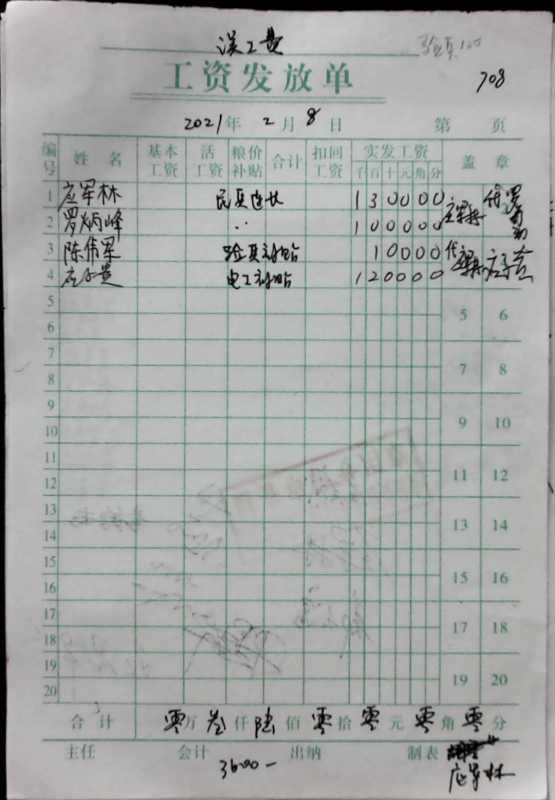 误工费
验具100
工资发放单
708
2021年 2月 8日 第 页
编号 姓名 基本工资 活工资 粮价补贴 合计 扣回工资 实发工资 千百十元角分 盖章
1 应军林 民兵连长 130000
2 罗炳峰 〃 100000
3 陈伟军 验具补贴 10000
4 电工补贴 120000
5 5 6
6
7 7 8
8
9 9 10
10
11 11 12
12
13 13 14
14
15 15 16
16
17 17 18
18
19 19 20
20
合计 零万叁仟陆佰零拾零元零角零分
主任 会计 出纳 制表
3600- 应军林